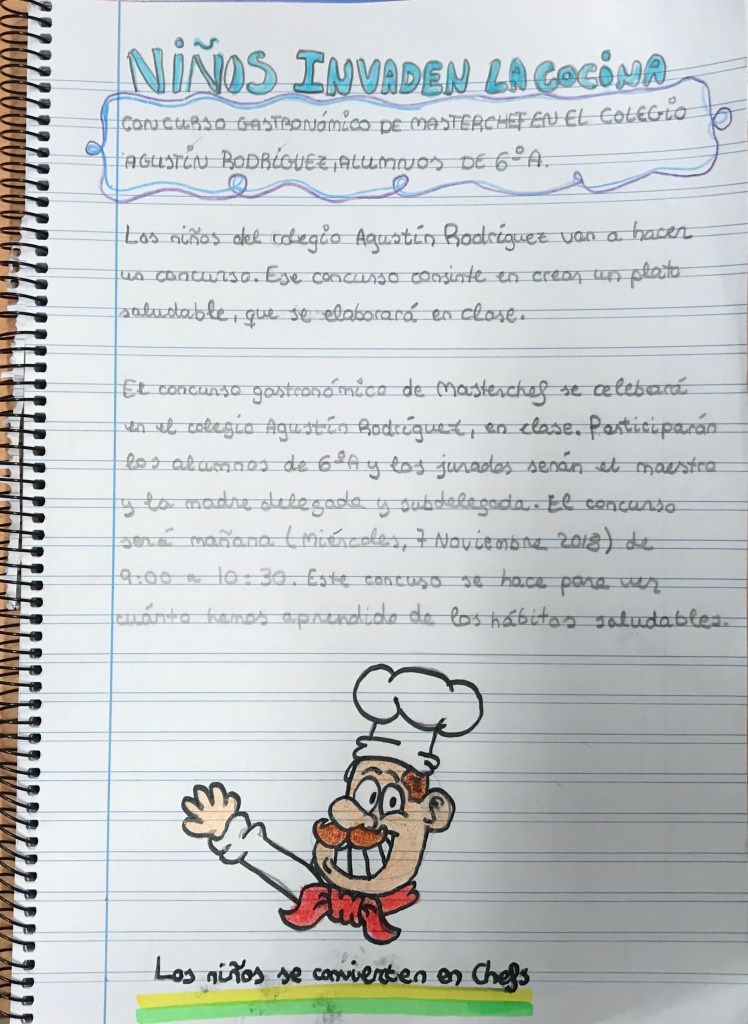 NIÑOS INVADEN LA COCINA
CONCURSO GASTRONÓMICO DE MASTERCHEF EN EL COLEGIO
AGUSTÍN RODRÍGUEZ, ALUMNOS DE 6ºA.
Los niños del colegio Agustín Rodríguez van a hacer
un concurso. Ese concurso consinte en crear un plato
saludable, que se elaborará en clase.
El concurso gastronómico de Masterchef se celebará
en el colegio Agustín Rodríguez, en clase. Participarán
los alumnos de 6ºA y los jurados serán el maestro
y la madre delegada y subdelegada. El concurso
será mañana (Miércoles, 7 Noviembre 2018) de
9:00 a 10:30. Este concuso se hace para ver
cuánto hemos aprendido de los hábitos saludables.
Los niños se convierten en Chefs